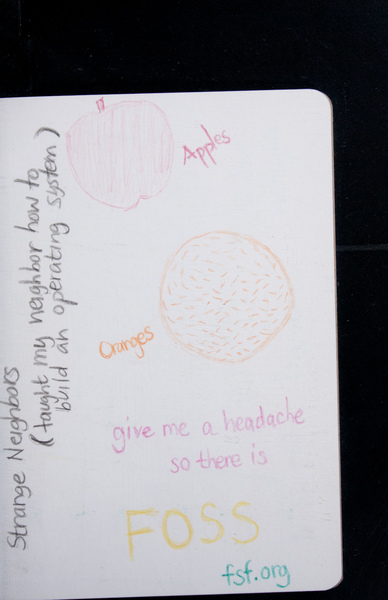 Strange Neighbors
(taught my neighbor how to
build an operating system)
Apples
Oranges
give me a headache
so there is
FOSS
fsf.org